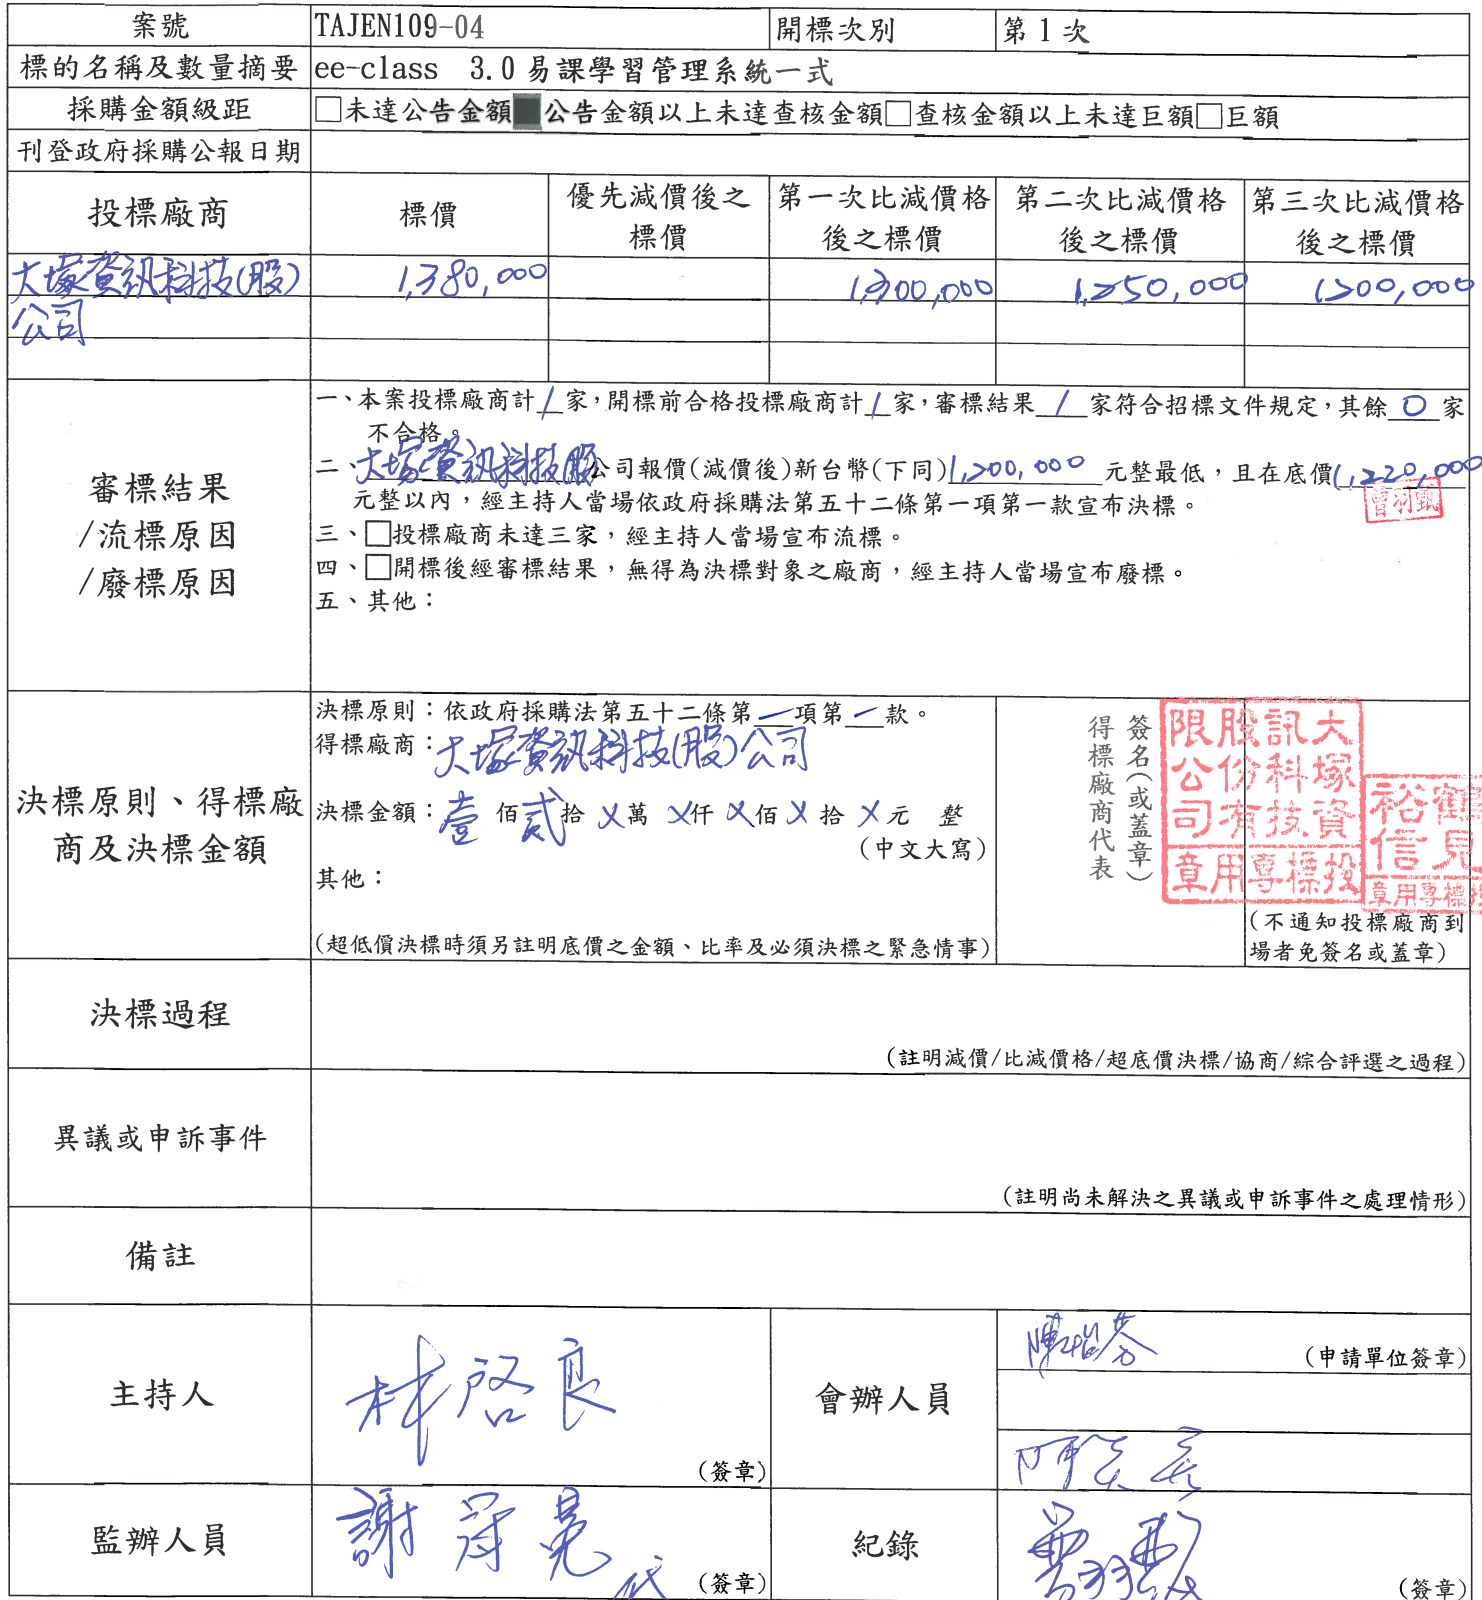 案號 TAJEN109-04 開標次別 第1次
標的名稱及數量摘要 ee-class 3.0易課學習管理系統一式
採購金額級距 □未達公告金額■公告金額以上未達查核金額□查核金額以上未達巨額□巨額
刊登政府採購公報日期
投標廠商 標價 優先減價後之標價 第一次比減價格後之標價 第二次比減價格後之標價 第三次比減價格後之標價
大塚資訊科技(股)公司 1,380,000 1,300,000 1,250,000 1,200,000
審標結果
/流標原因
/廢標原因
一、本案投標廠商計1家，開標前合格投標廠商計1家，審標結果1家符合招標文件規定，其餘0家
不合格。
二、大塚資訊科技股公司報價(減價後)新台幣(下同)1,200,000元整最低，且在底價1,220,000
元整以內，經主持人當場依政府採購法第五十二條第一項第一款宣布決標。
曾羽甄
三、□投標廠商未達三家，經主持人當場宣布流標。
四、□開標後經審標結果，無得為決標對象之廠商，經主持人當場宣布廢標。
五、其他：
決標原則、得標廠
商及決標金額
決標原則：依政府採購法第五十二條第一項第一款。
得標廠商：大塚資訊科技(股)公司
決標金額：壹佰貳拾X萬X仟X佰X拾X元 整
(中文大寫)
其他：
(超低價決標時須另註明底價之金額、比率及必須決標之緊急情事)
得標廠商代表
簽名(或蓋章)
大塚資訊科技股份有限公司
投標專用章
鶴見裕信
投標專用章
(不通知投標廠商到
場者免簽名或蓋章)
決標過程
(註明減價/比減價格/超底價決標/協商/綜合評選之過程)
異議或申訴事件
(註明尚未解決之異議或申訴事件之處理情形)
備註
主持人 林啓良 (簽章)
會辦人員 陳怡芬 (申請單位簽章)
監辦人員 謝 代 (簽章)
紀錄 (簽章)